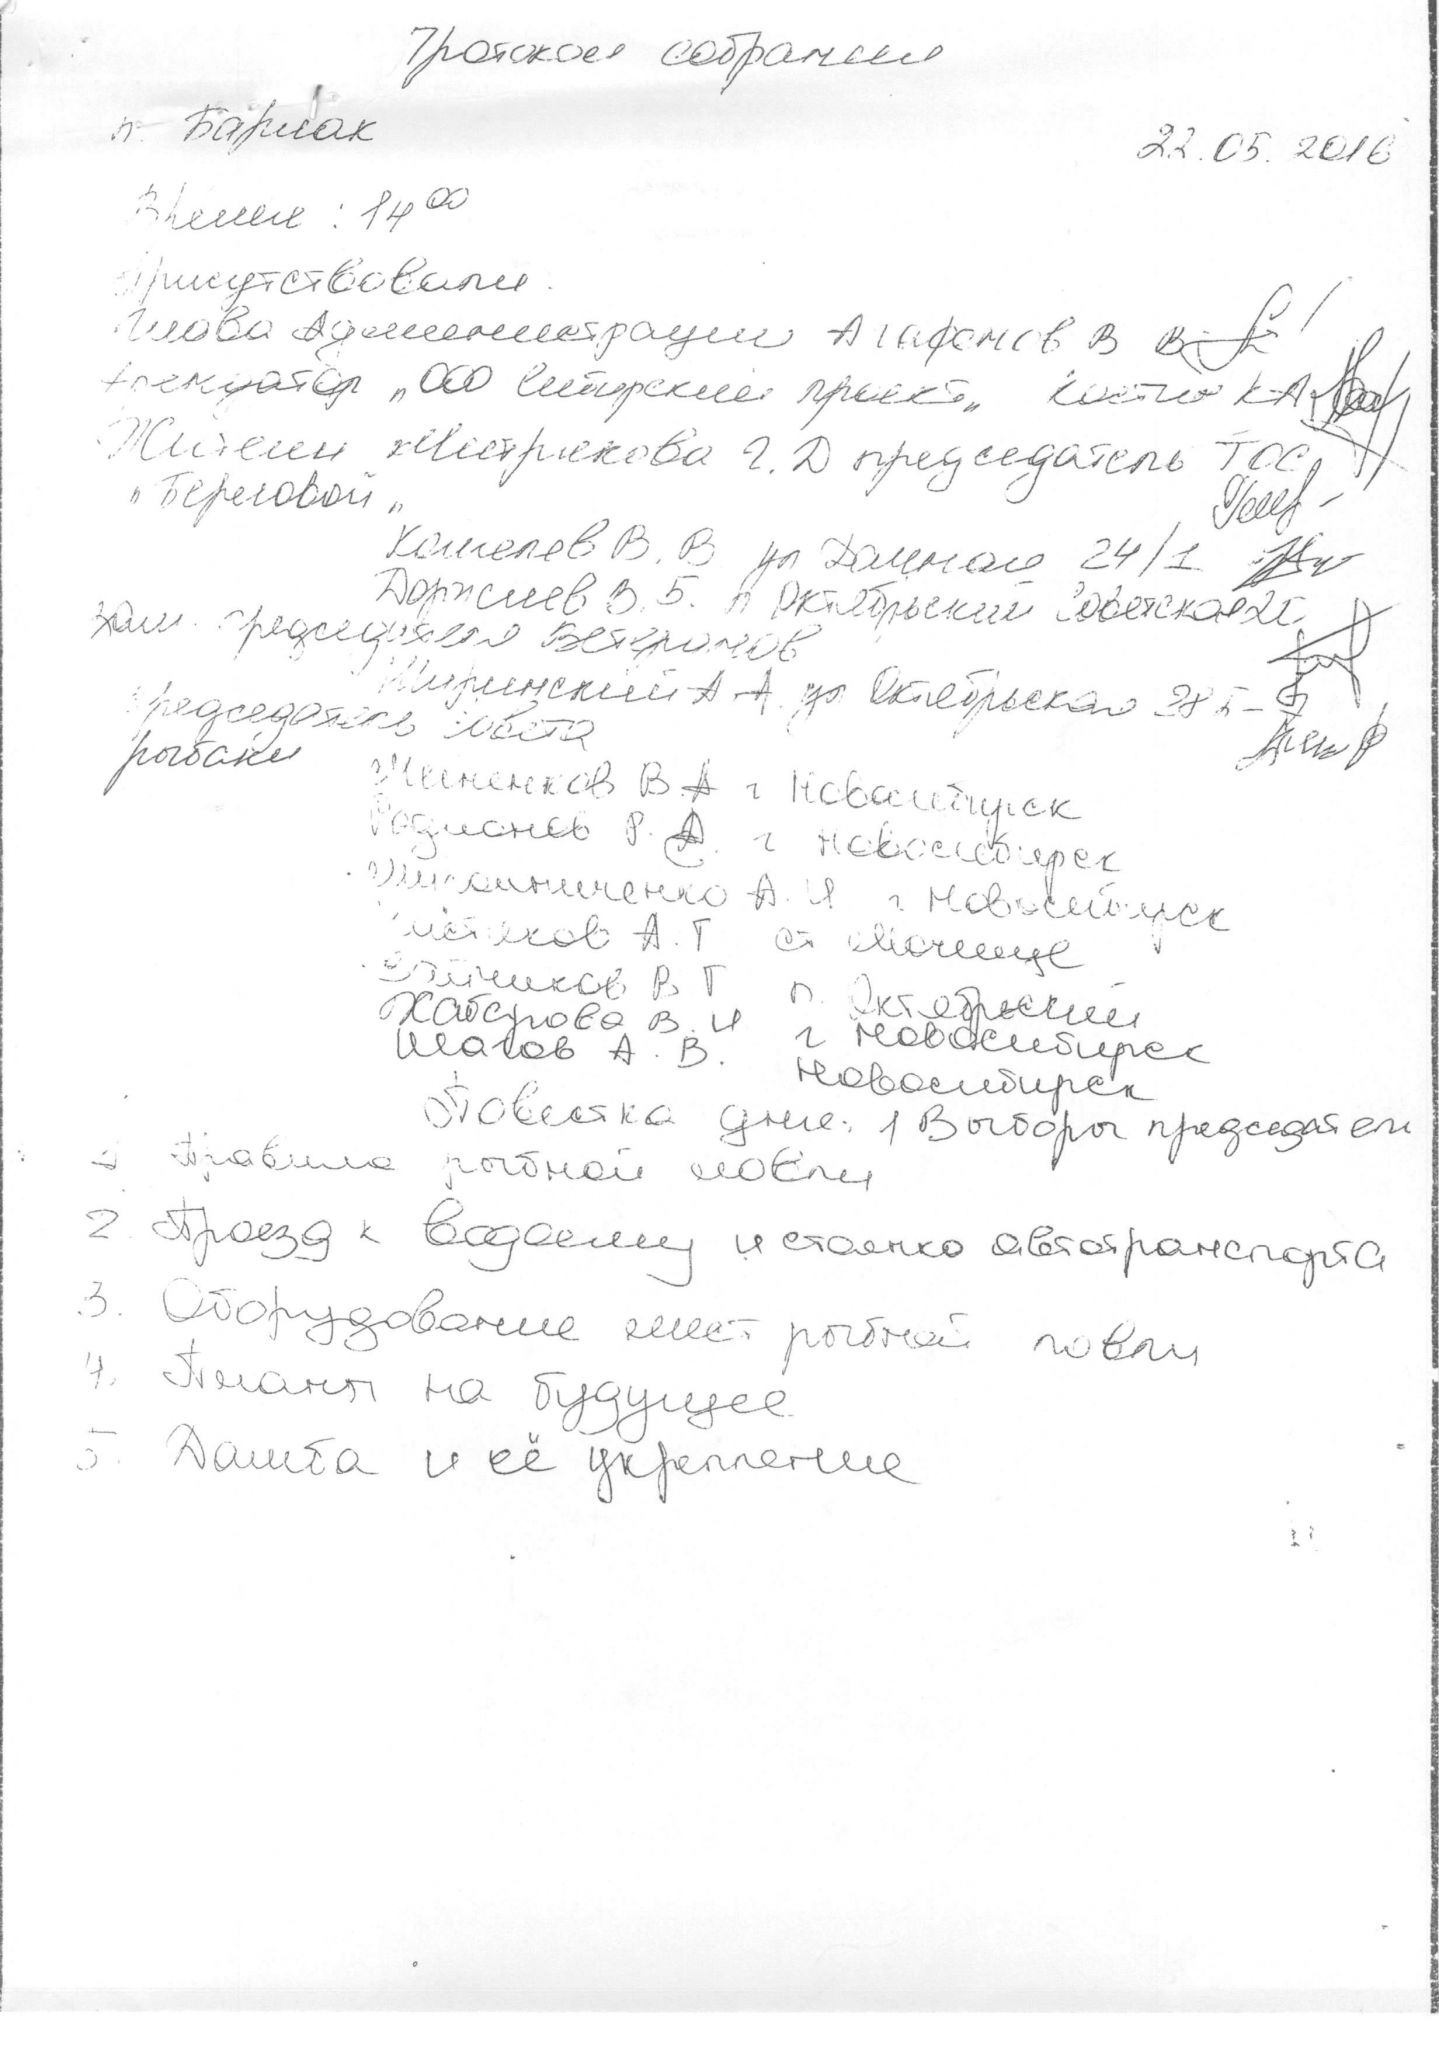 Протокол собрания
п. Барлак
22.05.2016
Время : 14 00
Присутствовали
Глава Администрации Агафонов В В
Арендатор "ООО Сибирский проект" Костин К А
Жители Мистрюкова Г. Д председатель ТОС
"Береговой"
Кошелев В. В ул Дачная 24/1
Доржиев В. Б. п Октябрьский Советская
Зам. председателя Ветеранов
Ширинский А А. ул Октябрьская 28
председатель Совета
рыбаки
В. А г Новосибирск
Родионов Р. А. г Новосибирск
А. И г Новосибирск
А. Г ст Мочище
В Г п. Октябрьский
Хабсурова В. И г Новосибирск
Шагов А. В. Новосибирск
Повестка дня: 1 Выборы председателя
1 Правила рыбной ловли
2. Проезд к водоему и стоянка автотранспорта
3. Оборудование мест рыбной ловли
4. Планы на будущее
5. Дамба и её укрепление